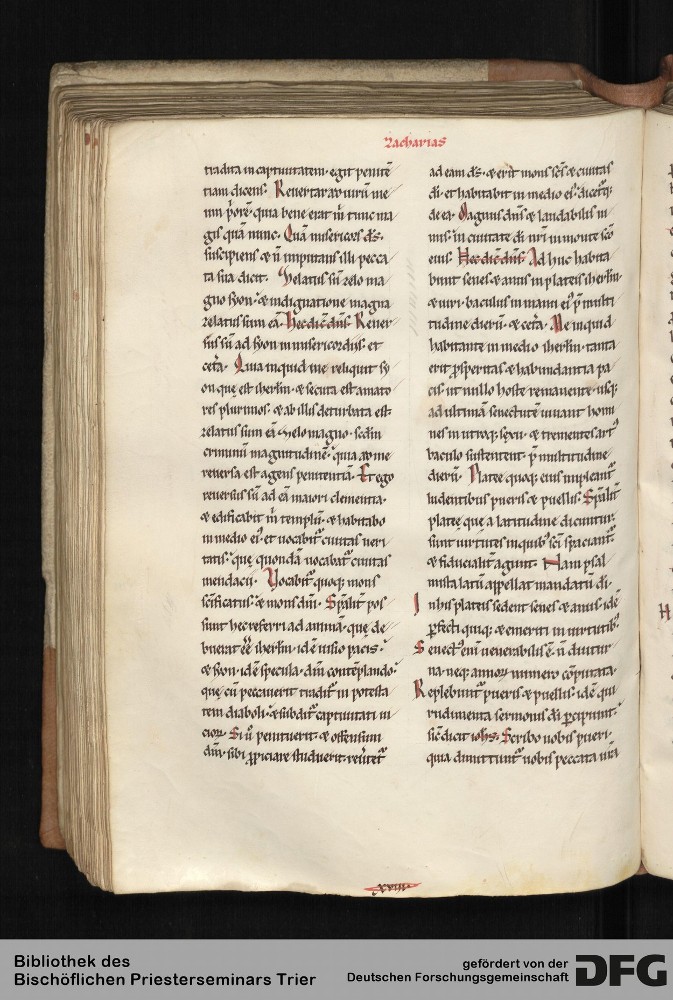 Zacharias
tradita in captiuitatem. egit penitē
tiam dicens. Reuertar ad uirū me
um p̄orē. quia bene erat m̄ tunc ma
gis quā nunc. Quā misericors d̄s.
suscipiens & n̄ imputans illi pecca
ta sua dicit. Zelatus sū zelo ma
gno syon. & indignatione magna
zelatus sum eā. Hec dic̄ dn̄s. Reuer
sus sū ad syon in misericordiis. et
cet̄a. Quia inquid me reliquit sy
on quę est iherlm̄. & secuta est amato
res plurimos. & ab illis deturbata est.
zelatus sum eā zelo magno. scdm̄
criminū magnitudinē. quia ad me
reuersa est agens penitentiā. Et ego
reuersus sū ad eā maiori clementia.
& edificabit̄ m̄ templū. & habitabo
in medio ei᾽. et uocabit᷑ ciuitas ueri
tatis. quę quondā uocabat᷑ ciuitas
mendacii. Vocabit᷑ quoq; mons
sc̄ificatus. & mons dn̄i. Sp̄alit̄ pos
sunt hec referri ad animā. quę de
buerat ēē iherlm̄. idē uisio pacis.
& syon. idē specula. dm̄ contēplando.
quę cū peccauerit tradit᷑ in potesta
tem diaboli. & subdit᷑ captiuitati ui
cioꝝ. Si ū penituerit. & offensum
dm̄ sibi ꝓpiciare studuerit. reūtet᷑
ad eam d̄s. & erit mons sc̄s & ciuitas
dī. et habitabit in medio ei᾽. dicet᷑q;
de ea. Magnus dn̄s & laudabilis ni
mis. in ciuitate dī nr̄i in monte sc̄o
eius. Hec dic̄ dn̄s. Adhuc habita
bunt senes & anus in plateis iherlm̄
& uiri. baculus in manu ei᾽ p̄ multi
tudine dierū. & cet̄a. Me inquid
habitante in medio iherlm̄. tanta
erit ꝓsperitas & habundantia pa
cis. ut nullo hoste remanente. usq;
ad ultimā senectutē uiuant homi
nes in utroq; sexu. & trementes art᾽
baculo sustentent p̄ multitudine
dierū. Plateę quoq; eius impleant᷑
ludentibus pueris & puellis. Sp̄alit̄
plateę quę a latitudine dicuntur.
sunt uirtutes in quib᾽ sc̄i spaciant᷑.
& fiducialit̄ agunt. Nam psal
mista latū appellat mandatū dī.
In his plateis sedent senes & anus. idē
ꝑfecti quiq; & emeriti in uirtutib᾽.
Senect᾽ enī uenerabilis ē. n̄ diutur
na. neq; annoꝝ numero cōputata.
Replebunt᷑ pueris & puellis. idē qui
rudimenta sermonis dī ꝑcipiunt.
sic̄ dicit ioh̄s. Scribo uobis pueri.
quia dimittunt᷑ uobis peccata ur̄a
xviii
Bibliothek des
Bischöflichen Priesterseminars Trier
gefördert von der
Deutschen Forschungsgemeinschaft
DFG